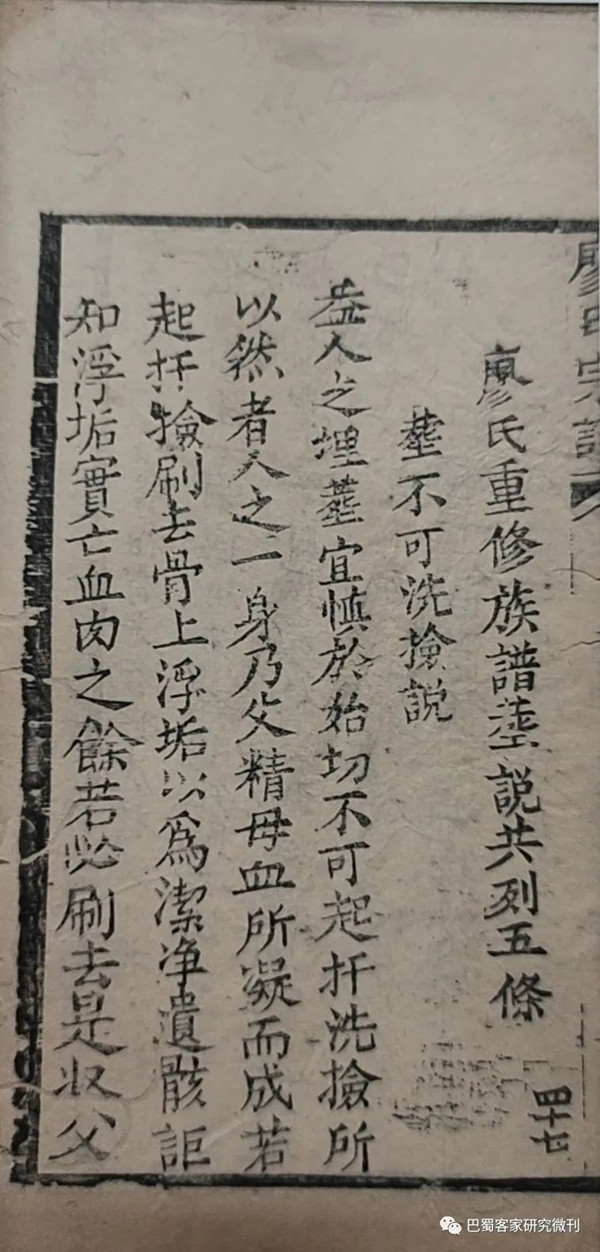 廖氏宗譜
四十七
廖氏重修族譜塟説共列五條
塟不可洗撿説
盖人之埋塟宜慎於始切不可起扦洗撿所
以然者人之一身乃父精母血所凝而成若
起扦撿刷去骨上浮垢以爲潔净遺骸詎
知浮垢實亡血肉之餘若必刷去是收父
巴蜀客家研究微刊